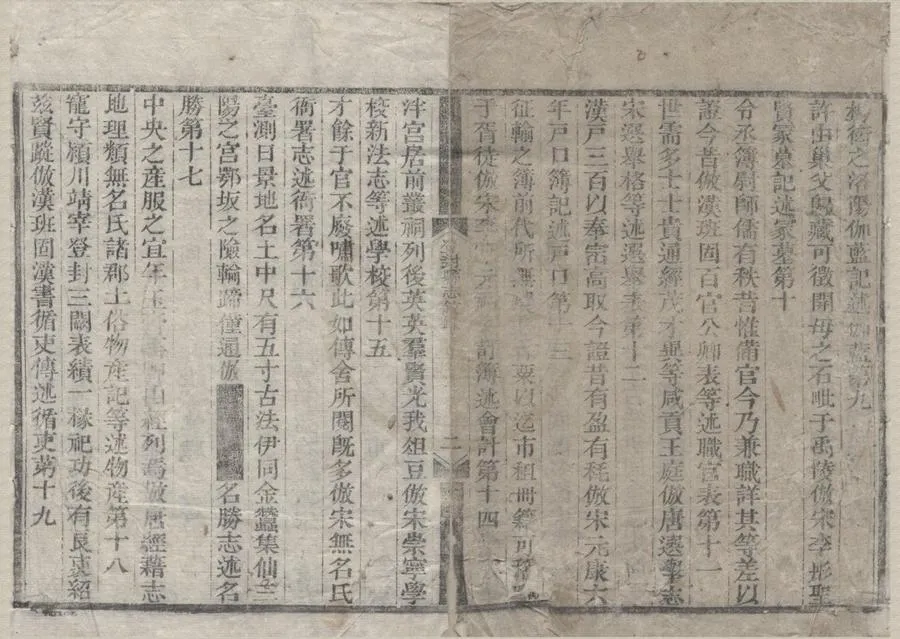 楊衒之洛陽伽藍記述伽藍第九
許由巢父歸藏可徵開母之石毗于禹陵倣宋李彤聖
賢冢墓記述冢墓第十
令丞簿尉師儒有秩昔惟備官今乃兼職詳其等差以
證今昔倣漢班固百官公卿表等述職官表第十一
世需多士士貴通經茂才異等咸貢王庭倣唐選舉志
宋選舉格等述選舉表第十二
漢戸三百以奉嵩高取今證昔有盈有秏倣宋元康六
年戸口簿記述戸口第十三
征輸之簿前代所無 粟以迄市租冊籍可稽
于胥徒倣宋李 元 簿述會計第十四
二
泮宮居前叢祠列後英英羣賢光我俎豆倣宋崇寧學
校新法志等述學校第十五
才餘于官不廢嘯歌此如傳舍所閱旣多倣宋無名氏
衙署志述衙署第十六
臺測日景地名土中尺有五寸古法伊同金蠶集仙三
陽之宮鄂坂之險輪蹄僮通倣 名勝志述名
勝第十七
中央之產服之宜年 山經列焉倣唐經籍志
地理類無名氏諸郡土俗物產記等述物產第十八
寵守潁川靖宰登封三闕表績一椽祀功後有良吏紹
茲賢蹤倣漢班固漢書循吏傳述循吏第十九